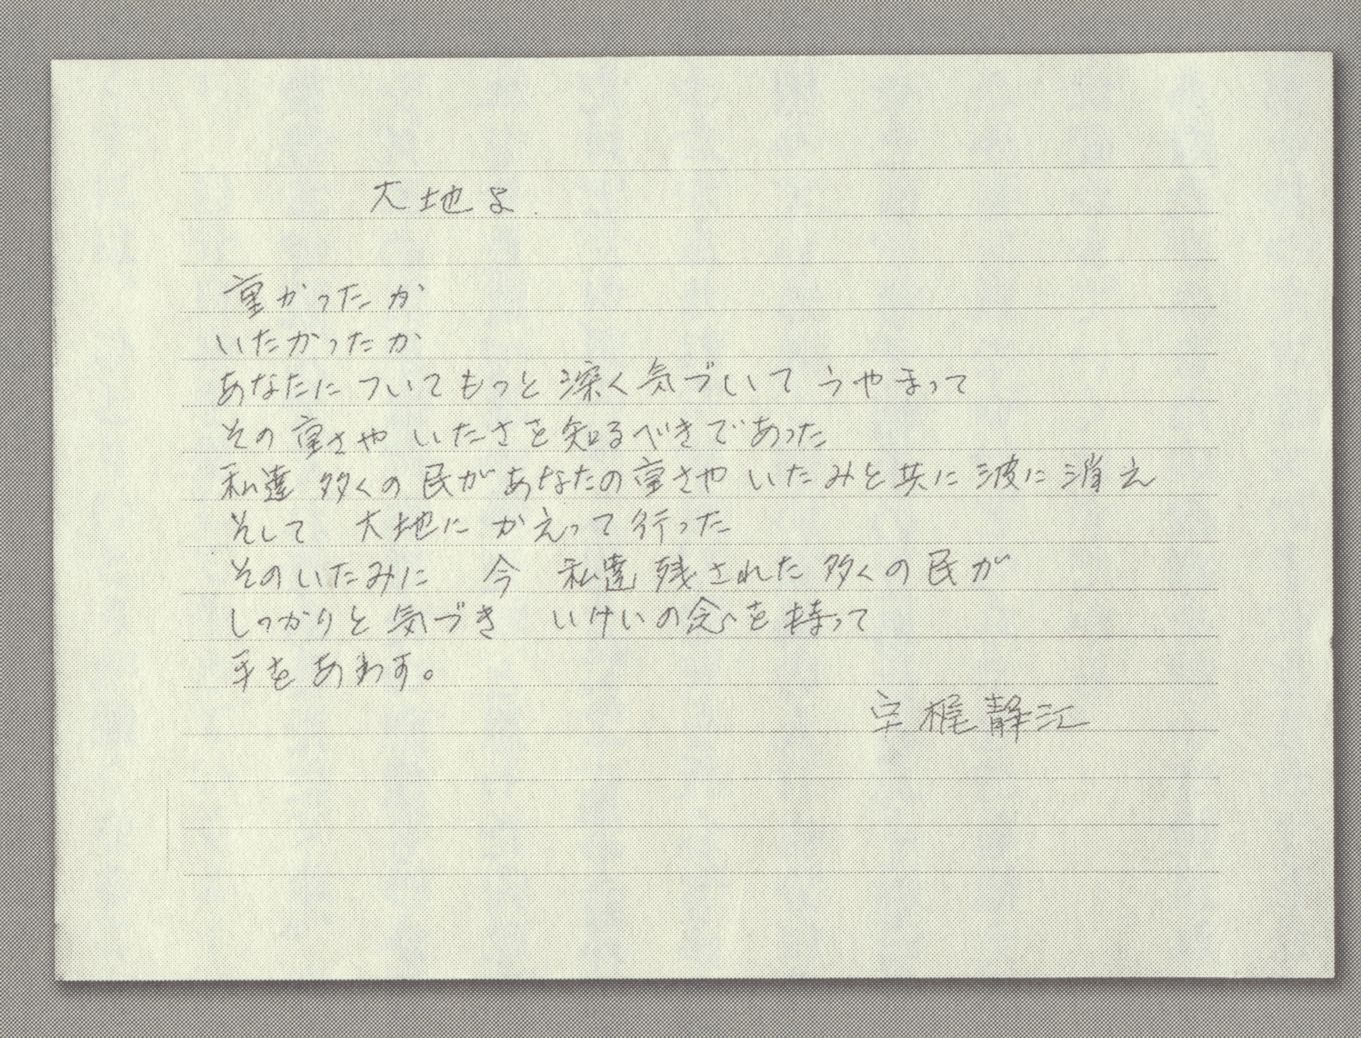 大地よ
重かったか
いたかったか
あなたについてもっと深く気づいて うやまって
その重さや いたさを知るべきであった
私達 多くの民があなたの重さや いたみと共に 波に消え
そして 大地に かえって行った
そのいたみに 今 私達 残された 多くの民が
しっかりと 気づき いけいの念を持って
手をあわす。
宇梶静江